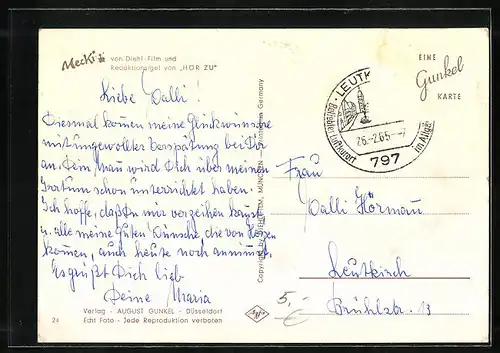 Mecki von Diehl-Film und
Redaktionsigel von „HÖR ZU"
Liebe Dalli!
Diesmal kommen meine Glückwünsche
mit ungewollter Verspätung bei Dir
an. Dein Mann wird Dich über meinen
Irrtum schon unterrichtet haben.
Ich hoffe, daß Du mir verzeihen kannst
u. alle meine guten Wünsche, die von Herzen
kommen, auch heute noch annimmst.
Es grüßt Dich lieb
Deine Maria
Verlag - AUGUST GUNKEL - Düsseldorf
24 Echt Foto - Jede Reproduktion verboten
Copyright by DIEHL-FILM, MÜNCHEN Germany
LEUTK
Beliebter Luftkurort im Allgäu
26.-2.65.--7
797
EINE
Gunkel
KARTE
Frau
Dalli Hörmann
Leutkirch
Brühlstr. 13
5,-
€